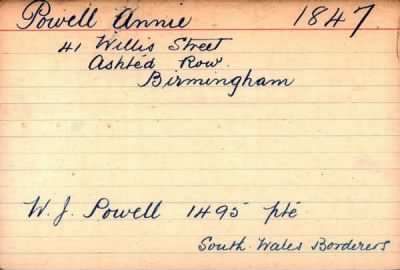 Powell Annie 1847
41 Willis Street
Ashted Row.
Birmingham
W. J. Powell 1495 pte
South Wales Borderers